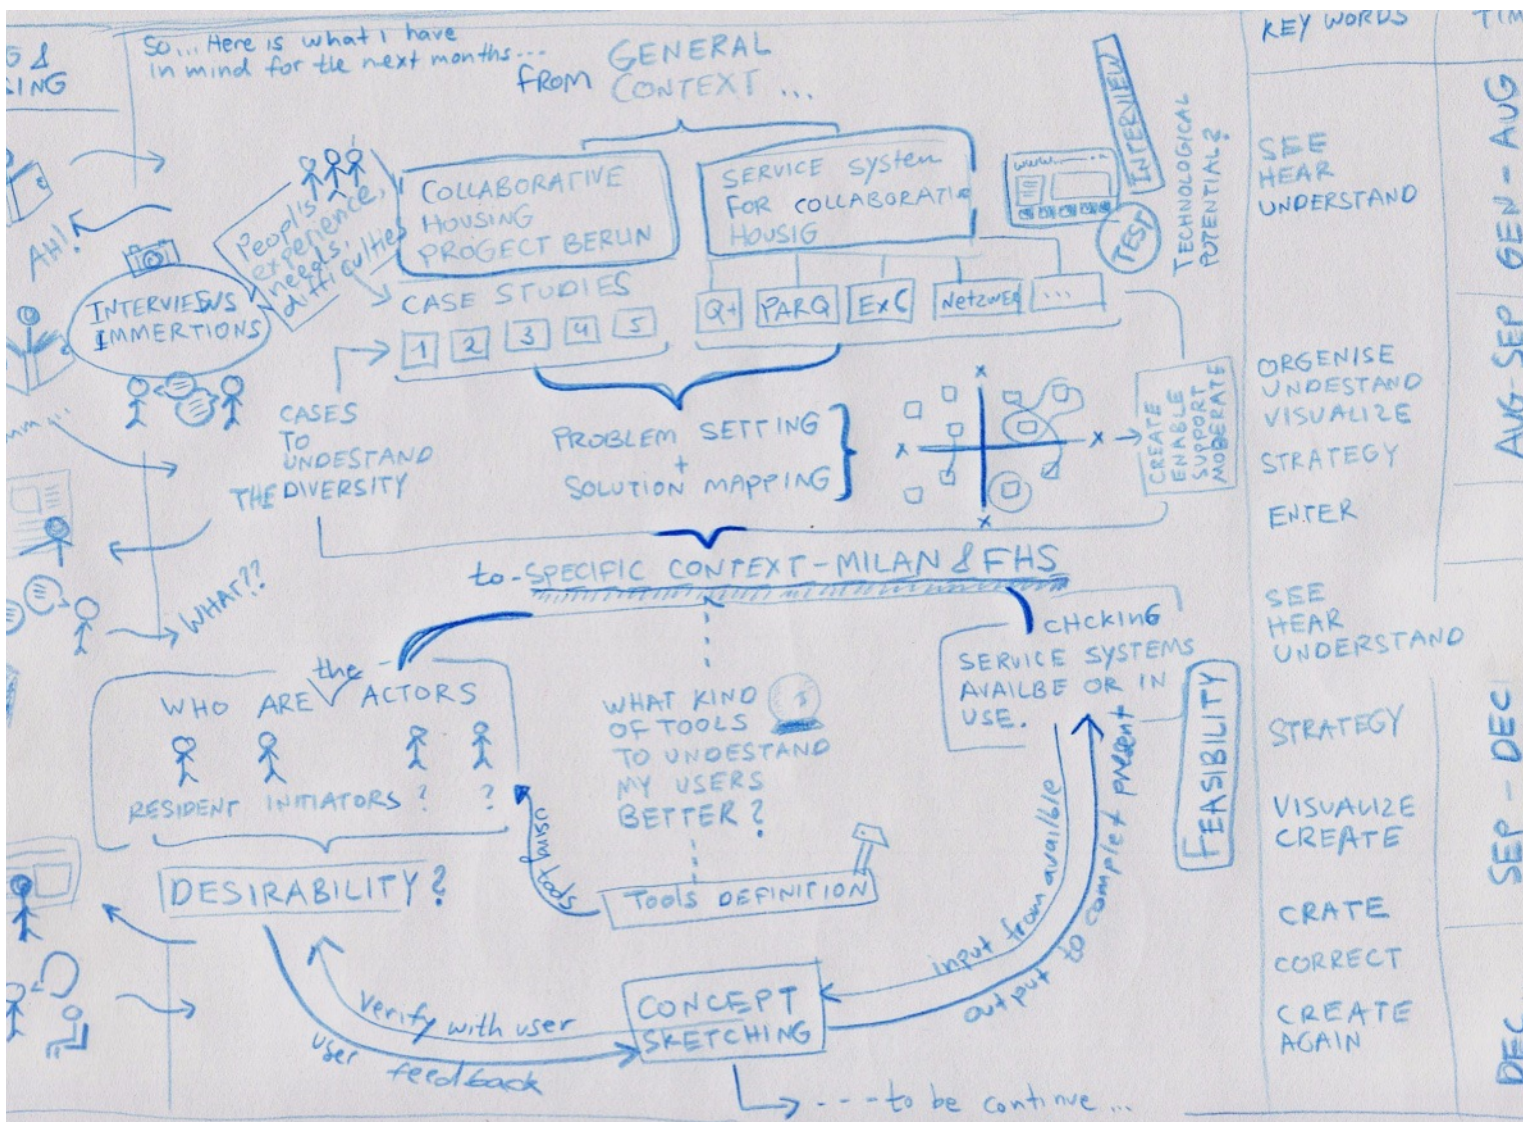 G &
SING
So... Here is what I have
in mind for the next months...
FROM GENERAL
CONTEXT ...
KEY WORDS
TIM
AH!
INTERVIEWS
IMMERTIONS
People's
experience,
needs,
difficulties
COLLABORATIVE
HOUSING
PROGECT BERLIN
CASE STUDIES
1 2 3 4 5
SERVICE System
FOR COLLABORATIVE
HOUSIG
Q+ PARQ ExC Netzwer ...
www.
INTERVIEW
TEST
TECHNOLOGICAL
POTENTIAL?
CASES
TO
UNDESTAND
THE DIVERSITY
PROBLEM SETTING
+
SOLUTION MAPPING
X
X X
X
CREATE
ENABLE
SUPPORT
MODERATE
to-SPECIFIC CONTEXT-MILAN & FHS
WHAT??
WHO ARE the ACTORS
RESIDENT INITIATORS ? ?
DESIRABILITY?
WHAT KIND
OF TOOLS
TO UNDESTAND
MY USERS
BETTER?
TOOLS DEFINITION
using
tools
CHCKING
SERVICE SYSTEMS
AVAILBE OR IN
USE.
FEASIBILITY
input from available
output to complet present
CONCEPT
SKETCHING
Verify with user
user feedback
----to be continue...
SEE
HEAR
UNDERSTAND
ORGENISE
UNDESTAND
VISUALIZE
STRATEGY
ENTER
SEE
HEAR
UNDERSTAND
STRATEGY
VISUALIZE
CREATE
CRATE
CORRECT
CREATE
AGAIN
GEN - AUG
AUG-SEP
SEP - DEC
DEC